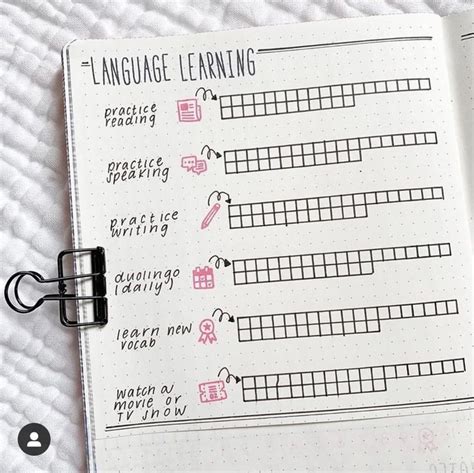 LANGUAGE LEARNING
practice
reading
practice
speaking
practice
writing
duolingo
(daily)
learn new
vocab
watch a
movie or
TV show